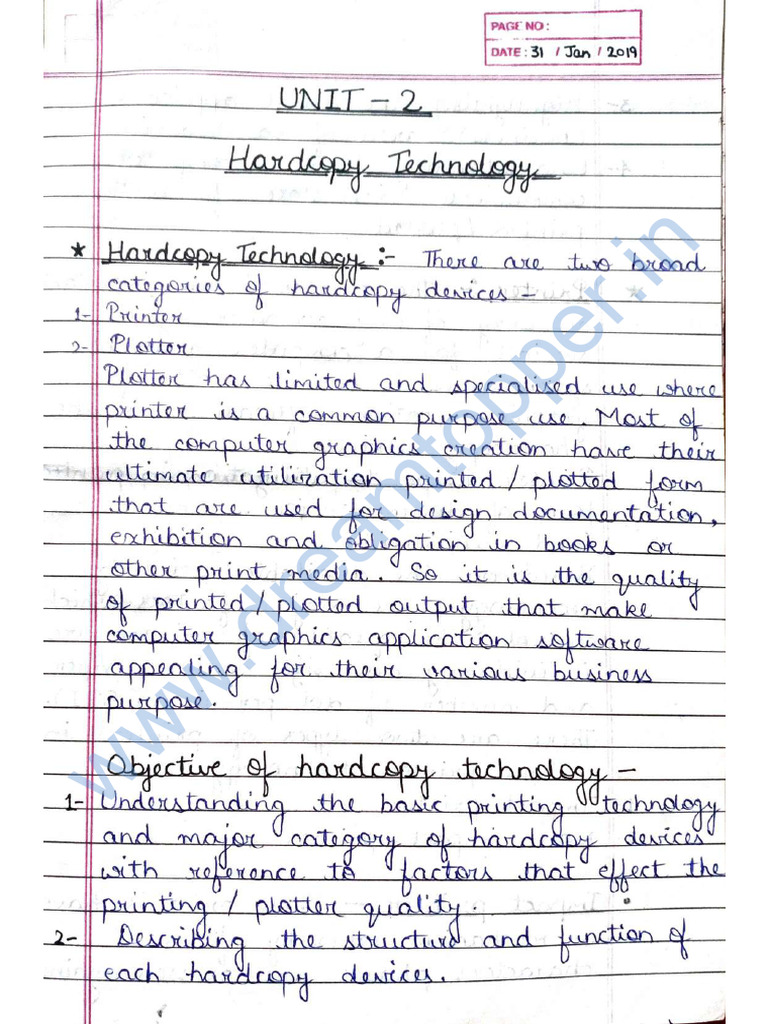 PAGE NO:
DATE: 31 / Jan / 2019
UNIT - 2
Hardcopy Technology
* Hardcopy Technology :- There are two broad
categories of hardcopy devices -
1- Printer
2- Plotter
Plotter has limited and specialised use where
printer is a common purpose use. Most of
the computer graphics creation have their
ultimate utilization printed / plotted form
that are used for design documentation,
exhibition and obligation in books or
other print media. So it is the quality
of printed / plotted output that make
computer graphics application software
appealing for their various business
purpose.
Objective of hardcopy technology -
1- Understanding the basic printing technology
and major category of hardcopy devices
with reference to factors that effect the
printing / plotter quality.
2- Describing the structure and function of
each hardcopy devices.
www.dreamtopper.in